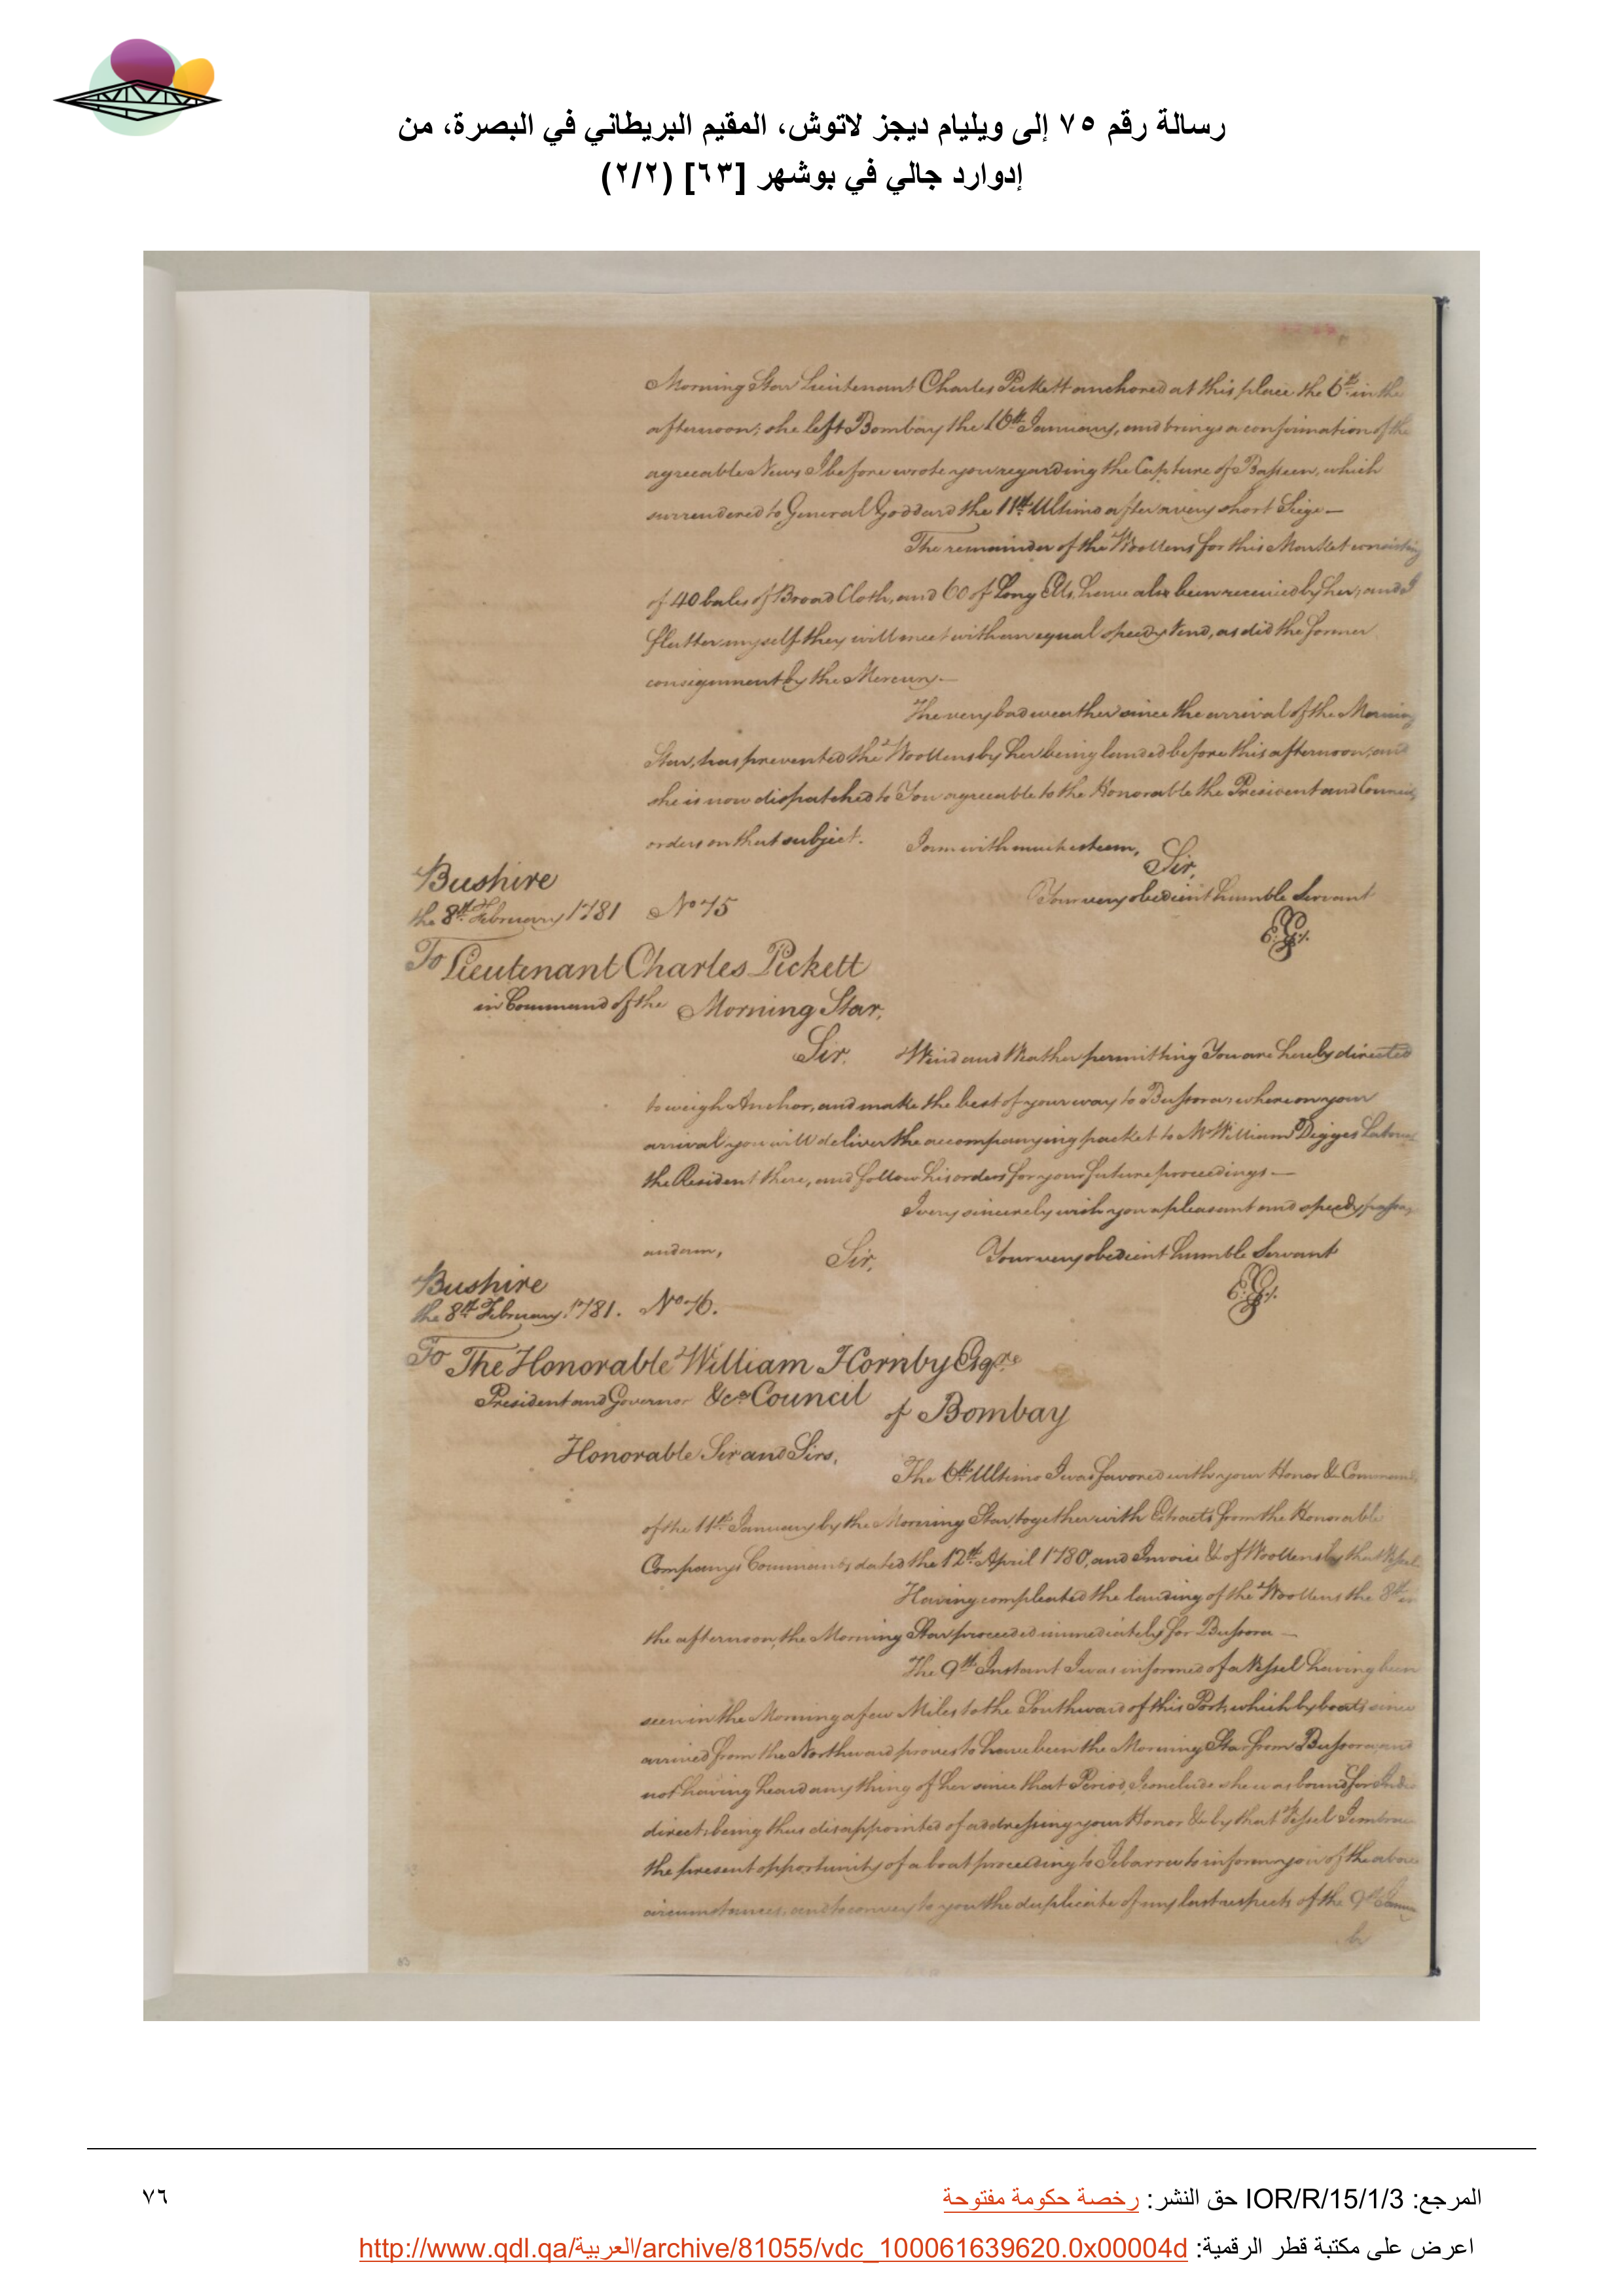 رسالة رقم ٧٥ إلى ويليام ديجز لاتوش، المقيم البريطاني في البصرة، من
إدوارد جالي في بوشهر [٦٣] (٢/٢)
Morning Star Lieutenant Charles Pickett anchored at this place the 6th in the
afternoon; she left Bombay the 16th January, and brings a confirmation of the
agreeable News I before wrote you regarding the Capture of Bassien, which
surrendered to General Goddard the 11th Ultimo after a very short Siege —
The remainder of the Woollens for this Market consisting
of 40 bales of Broad Cloth, and 60 of Long Ells, have also been received by her; and I
flatter myself they will meet with an equal speedy Vend, as did the former
consignment by the Mercury. —
The very bad weather since the arrival of the Morning
Star, has prevented the Woollens by her being landed before this afternoon, and
she is now dispatched to You agreeable to the Honorable the President and Council's
orders on that subject. I am with much esteem,
Sir,
Bushire
Your very obedient humble Servant
the 8th February 1781 No 75
E: G:
To Lieutenant Charles Pickett
in Command of the Morning Star,
Sir, Wind and Weather permitting You are hereby directed
to weigh Anchor, and make the best of your way to Bussora, where on your
arrival you will deliver the accompanying packet to Mr William Digges Latouche
the Resident there, and follow his orders for your future proceedings —
I very sincerely wish you a pleasant and speedy passage
and am, Sir, Your very obedient humble Servant
Bushire
E: G:
the 8th February 1781. No 76.
To The Honorable William Hornby Esqre
President and Governor &ca Council
of Bombay
Honorable Sir and Sirs,
The 6th Ultimo I was favored with your Honor &c Commands
of the 11th January by the Morning Star, together with Extracts from the Honorable
Company's Commands dated the 12th April 1780, and Invoice &c of Woollens by that Vessel
Having compleated the landing of the Woollens the 8th in
the afternoon, the Morning Star proceeded immediately for Bussora —
The 9th Instant I was informed of a Vessel having been
seen in the Morning a few Miles to the Southward of this Port, which by boats since
arrived from the Northward proves to have been the Morning Star from Bussora, and
not having heard any thing of her since that Period, I conclude she was bound for India
direct; being thus disappointed of addressing your Honor &c by that Vessel I embrace
the present opportunity of a boat proceeding to to inform you of the above
circumstances, and to convey to you the duplicate of my last respects of the 9th
by
63
المرجع: IOR/R/15/1/3 حق النشر: رخصة حكومة مفتوحة
٧٦
اعرض على مكتبة قطر الرقمية: http://www.qdl.qa/العربية/archive/81055/vdc_100061639620.0x00004d